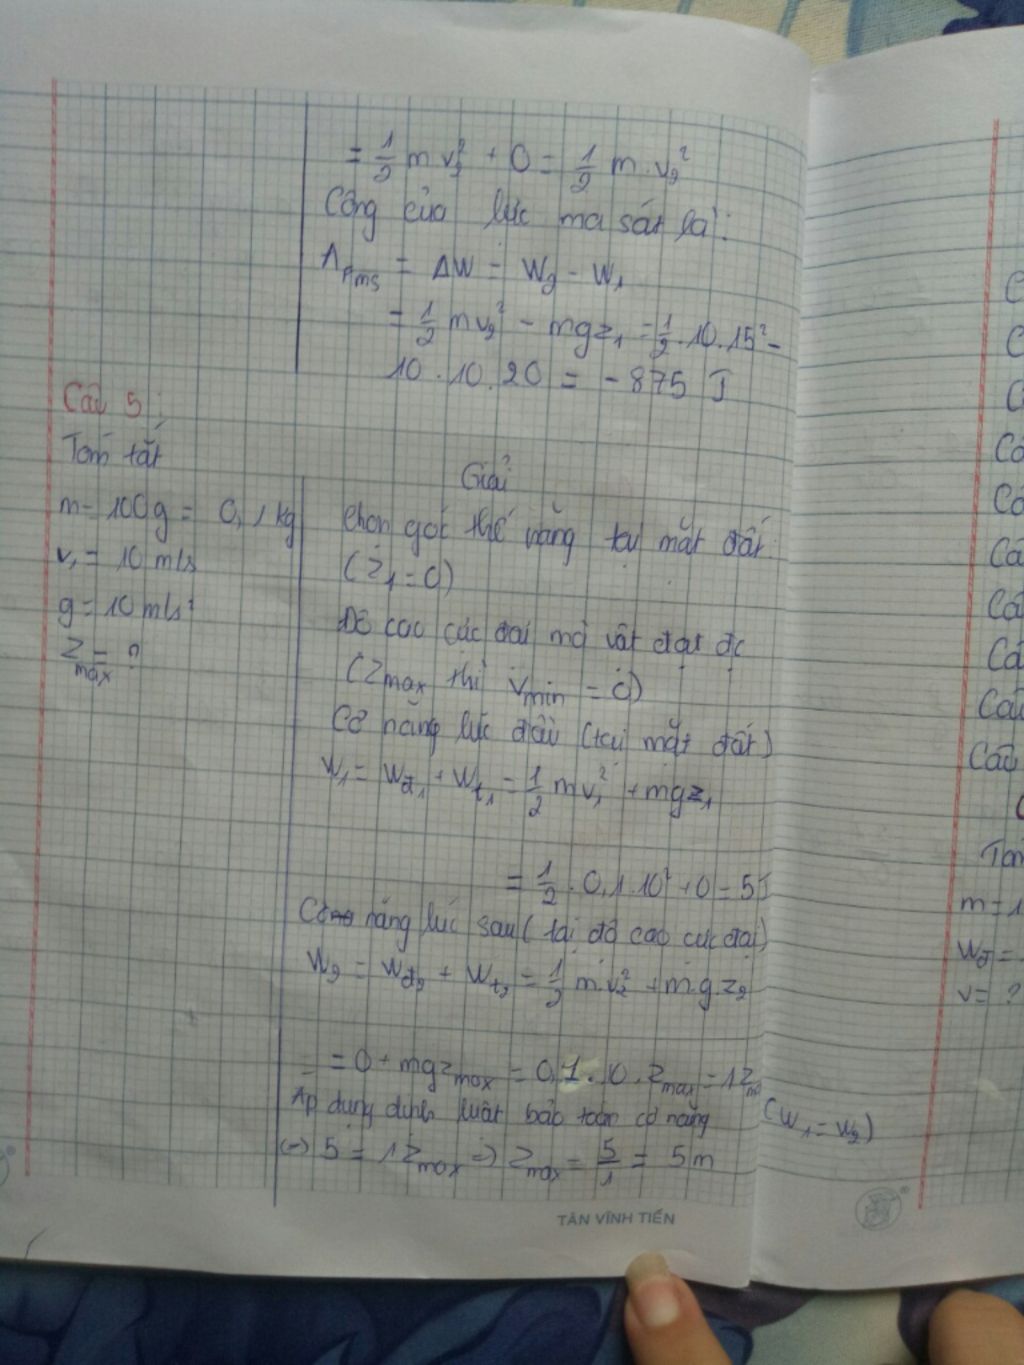 = 1/2 m v₂² + 0 = 1/2 m.v₂²
Công của lực ma sát là:
A_Fms = ΔW = W₂ - W₁
= 1/2 mv₂² - mgz₁ = 1/2.10.15² -
10.10.20 = -875 J
Câu 5:
Tóm tắt
Giải
m = 100g = 0,1 kg
v₁ = 10 m/s
g = 10 m/s²
Z_max = ?
chọn gốc thế năng tại mặt đất
(z₁ = 0)
Độ cao cực đại mà vật đạt đc
(Z_max thì v_min = 0)
Cơ năng lúc đầu (tại mặt đất)
W₁ = Wđ₁ + Wt₁ = 1/2 mv₁² + mgz₁
= 1/2.0,1.10² + 0 = 5J
Cơ năng lúc sau (tại độ cao cực đại)
W₂ = Wđ₂ + Wt₂ = 1/2 m.v₂² + m.g.z₂
= 0 + mgz_max = 0,1.10.Z_max = 1Z_max
Áp dụng định luật bảo toàn cơ năng (W₁ = W₂)
(-) 5 = 1Z_max => Z_max = 5/1 = 5m
TÂN VĨNH TIẾN
m = 1
Wđ =
v = ?